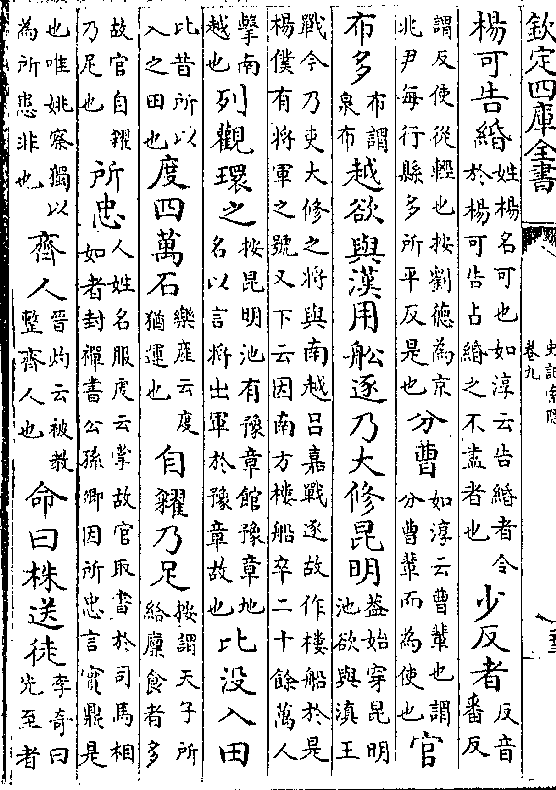 欽定四庫全書
史記索隱
卷九
楊可告緡姓楊名可也如淳云告緡者令於楊可告占緡之不盡者也少反者反音番反
謂反使從輕也按劉德為京兆尹每行縣多所平反是也分曹如淳云曹輩也謂分曹輩而為使也官
布多布謂泉布越欲與漢用舩逐乃大修昆明葢始穿昆明池欲與滇王
戰今乃更大修之將與南越呂嘉戰逐故作樓船於是楊僕有將軍之號又下云因南方樓船卒二十餘萬人
擊南越也列觀環之按昆明池有豫章館豫章地名以言將出軍於豫章故也比没入田
比昔所以入之田也度四萬石樂產云度猶運也自糴乃足按謂天子所給廩食者多
故官自糴乃足也所忠人姓名服虔云掌故官取書於司馬相如者封禪書公孫卿因所忠言寳鼎是
也唯姚察獨以為所患非也齊人晉灼云被教整齊人也命曰株送徒李奇曰先至者